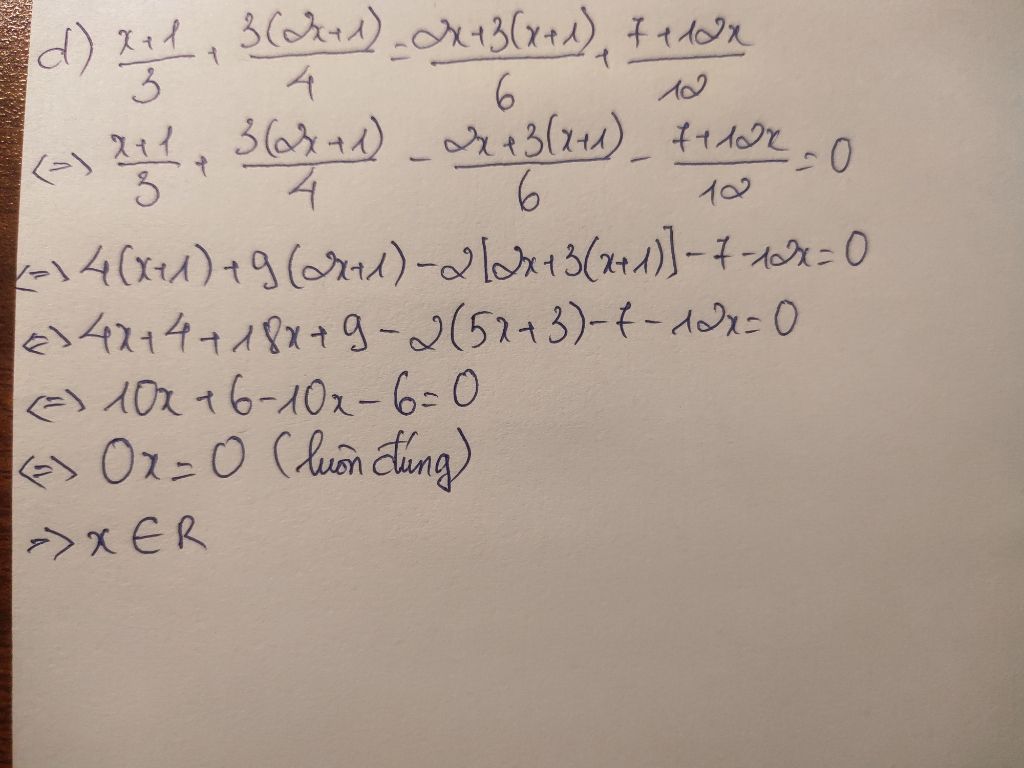 d) (x+1)/3 + 3(2x+1)/4 = (2x+3(x+1))/6 + (7+12x)/12
<=> (x+1)/3 + 3(2x+1)/4 - (2x+3(x+1))/6 - (7+12x)/12 = 0
<=> 4(x+1)+9(2x+1)-2[2x+3(x+1)]-7-12x=0
<=> 4x+4+18x+9-2(5x+3)-7-12x=0
<=> 10x+6-10x-6=0
<=> 0x=0 (luôn đúng)
=> x∈R